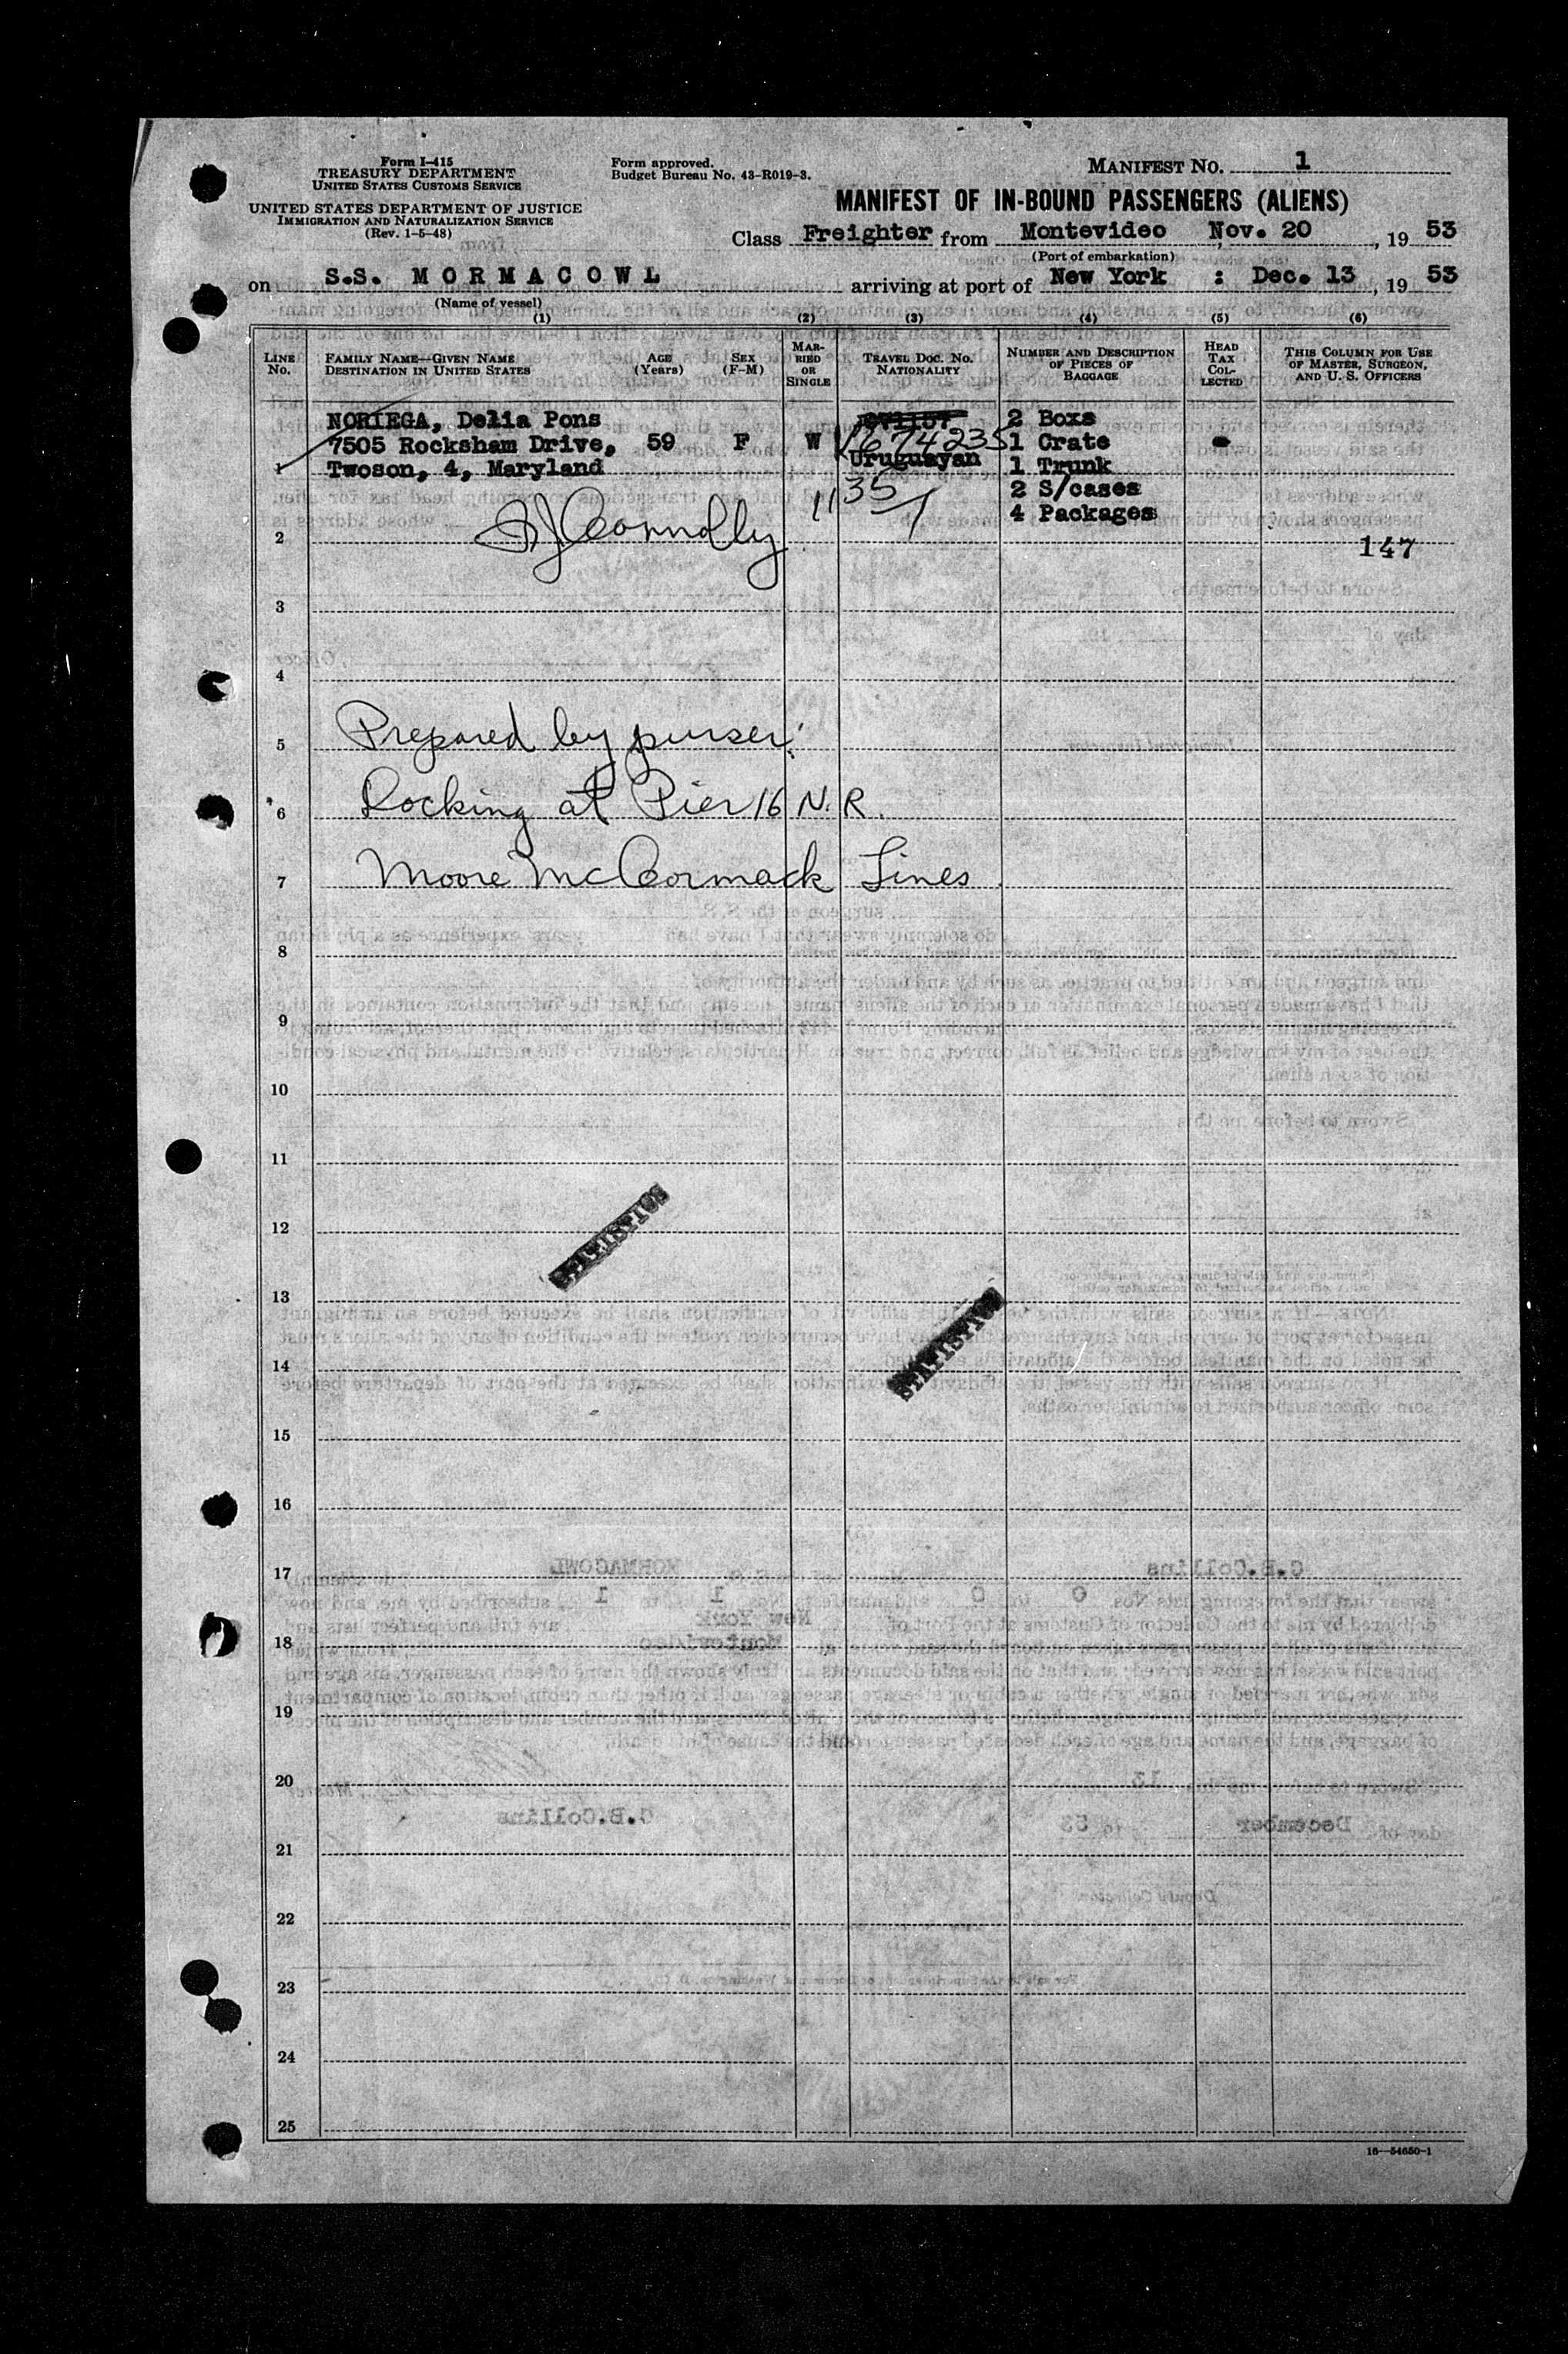 Form I-415
TREASURY DEPARTMENT
UNITED STATES CUSTOMS SERVICE
UNITED STATES DEPARTMENT OF JUSTICE
IMMIGRATION AND NATURALIZATION SERVICE
(Rev. 1-5-48)
Form approved.
Budget Bureau No. 43-R019-3.
MANIFEST NO. 1
MANIFEST OF IN-BOUND PASSENGERS (ALIENS)
Class Freighter from Montevideo Nov. 20, 1953
(Port of embarkation)
on S.S. MORMACOWL arriving at port of New York : Dec. 13, 1953
(Name of vessel)
(1) (2) (3) (4) (5) (6)
LINE No. FAMILY NAME—GIVEN NAME DESTINATION IN UNITED STATES AGE (Years) SEX (F-M) MARRIED OR SINGLE TRAVEL DOC. NO. NATIONALITY NUMBER AND DESCRIPTION OF PIECES OF BAGGAGE HEAD TAX COLLECTED THIS COLUMN FOR USE OF MASTER, SURGEON, AND U. S. OFFICERS
NORIEGA, Delia Pons 2 Boxs
7505 Rocksham Drive, 59 F W 1674235 1 Crate -
1 Twoson, 4, Maryland Uruguayan 1 Trunk
35 2 S/cases
11 4 Packages
Connolly
2 147
3
4
5 Prepared by purser.
6 Docking at Pier 16 N.R.
7 Moore McCormack Lines
8
9
10
11
12
STATISTICS
13
STATISTICS
14
15
16
17
18
19
20
21
22
23
24
25
16—54650-1